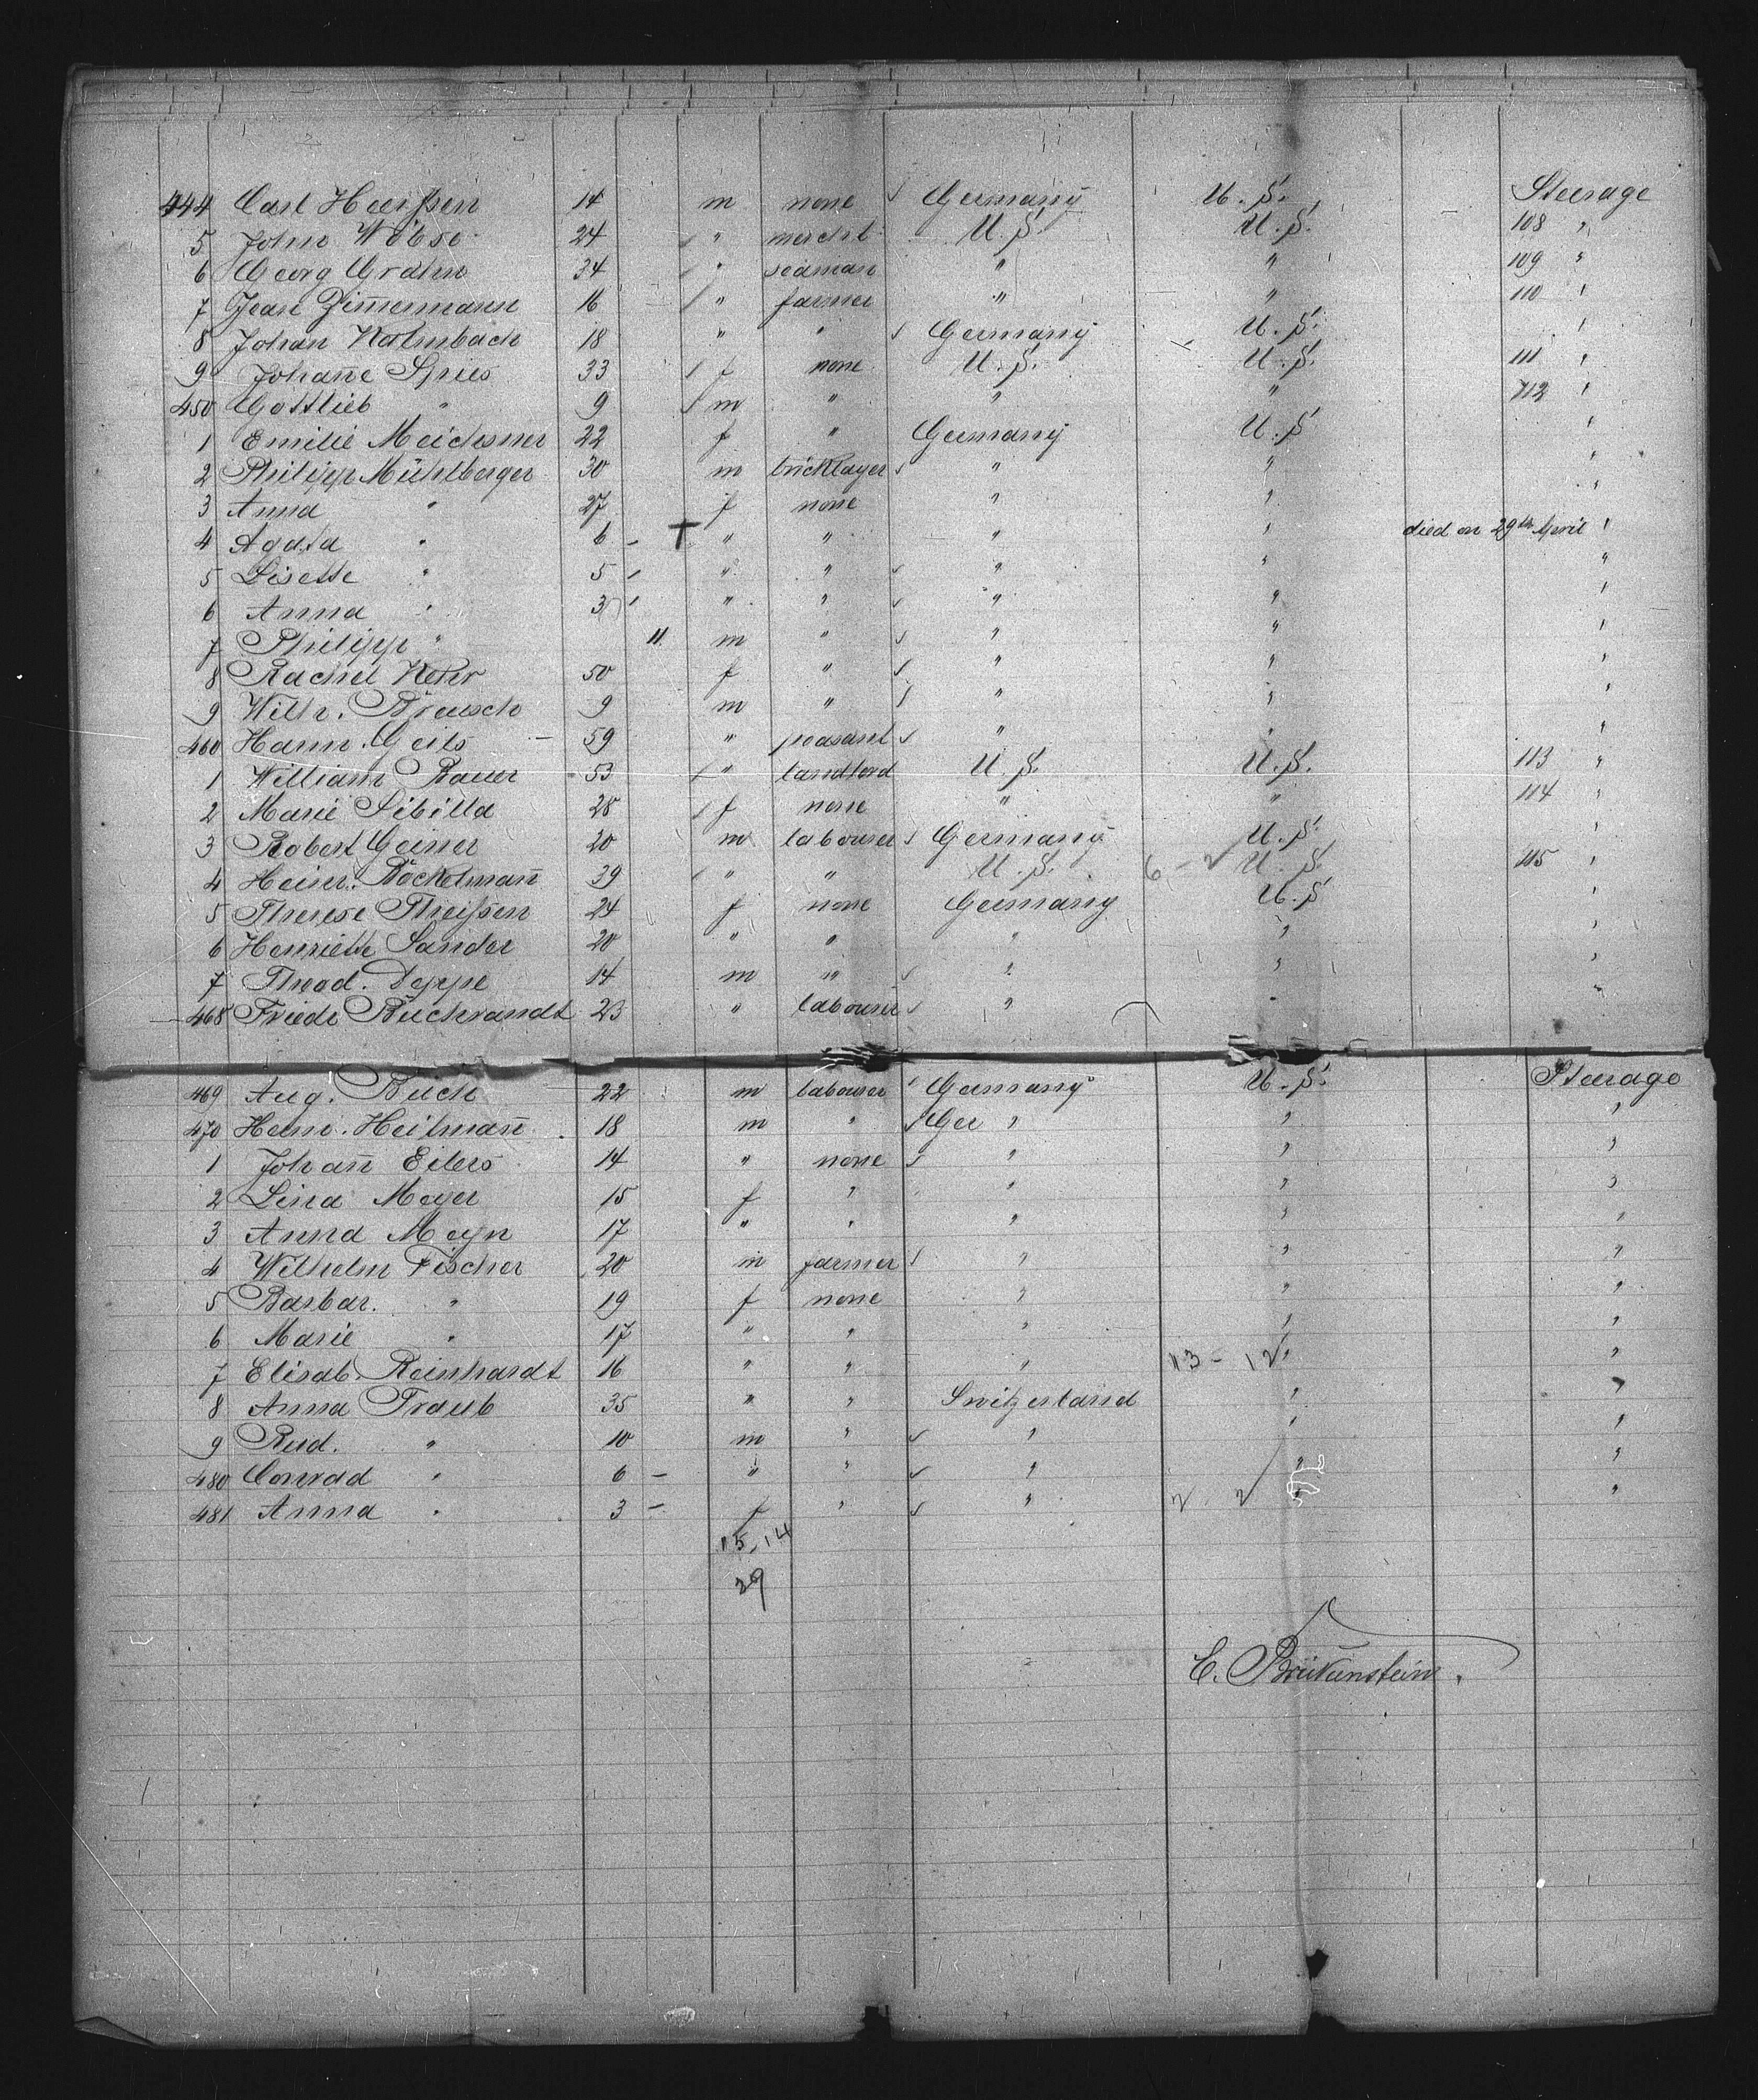 444 Carl Harssen 14 m none Germany U.S. Steerage
5 John Wöbse 24 " mercht U.S. U.S. 108 "
6 Georg Grahn 34 " seaman " " 109 "
7 Jean Zimmermann 16 " farmer " " 110 "
8 Johan Halmbach 18 " " Germany U.S. "
9 Johañe Spies 33 f none U.S. U.S. 111 "
450 Gottlieb " 9 m " " " 112 "
1 Emilie Meichsner 22 f " Germany U.S. "
2 Philipp Mühlberger 30 m bricklayer " " "
3 Anna " 27 f none " " "
4 Agata " 6 - † " " " " died on 29th April "
5 Lisette " 5 - " " " " "
6 Anna " 3 " " " " "
7 Philipp " 11. m " " " "
8 Rachel Kehr 50 f " " " "
9 Wilh. Brausch 9 m " " " "
460 Harm. Geils - 59 " peasant " " "
1 William Bauer 53 " landlord U.S. U.S. 113 "
2 Marie Sibilla 28 f none " " 114 "
3 Robert Geiser 20 m labourer Germany U.S. "
4 Heinr. Böckelmañ 39 " " U.S. 6 - U.S. 115 "
5 Therese Theissen 24 f none Germany U.S. "
6 Henriette Sander 20 " " " " "
7 Theod. Deppe 14 m " " " "
468 Friedr. Buchrandt 23 " labourer " " "
469 Aug. Buch 22 m labourer Germany U.S. Steerage
470 Herm. Heilmañ 18 m " Ger " " "
1 Johañ Eilers 14 " none " " "
2 Lina Meyer 15 f " " " "
3 Anna Meyn 17 " " " " "
4 Wilhelm Fischer 20 m farmer " " "
5 Barbar. " 19 f none " " "
6 Marie " 17 " " " " "
7 Elisab. Reinhardt 16 " " " 13 - 12 " "
8 Anna Traub 35 " " Switzerland " "
9 Rud. " 10 m " " " "
480 Conrad " 6 - " " " " "
481 Anna " 3 - f " " 2 2 " "
15, 14
29